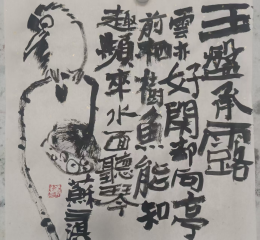 玉盤承露
雲亦好閑却向亭
前栖樹魚能知
趣頻來水面聽琴
蘇